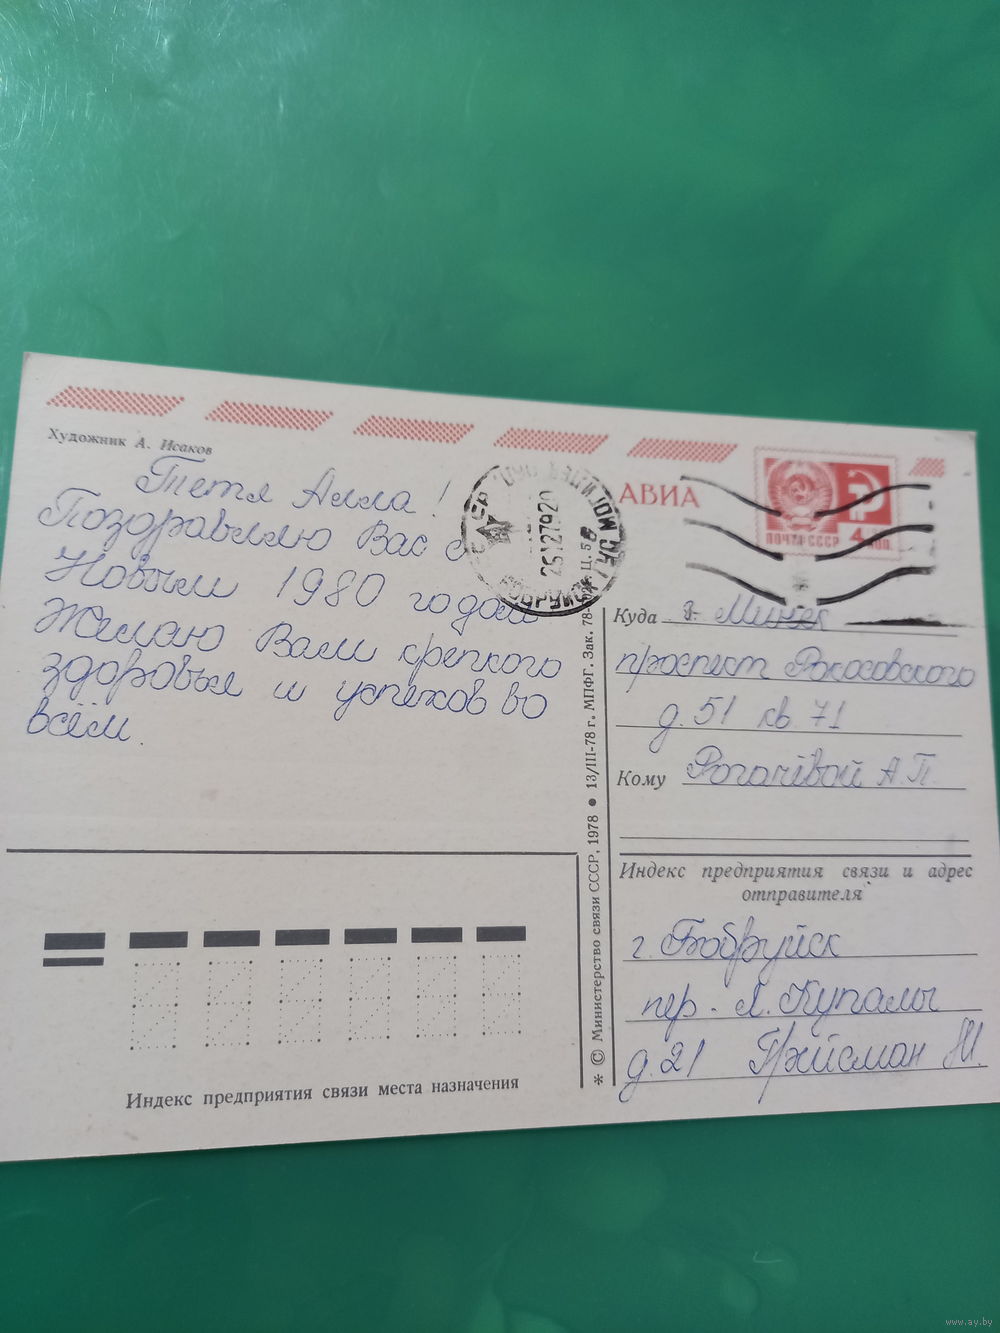 Художник А. Исаков
Тетя Алла!
Поздравляю Вас с
Новым 1980 годом
Желаю Вам крепкого
здоровья и успехов во
всём.
АВИА
ПОЧТА СССР
4 коп.
26127920
БОБРУЙСК
Куда г. Минск
проспект Рокосовского
д. 51 кв. 71
Кому Рогачёвой А.П.
Индекс предприятия связи и адрес
отправителя
г. Бобруйск
пер. Я. Купалы
д. 21 Грейсман Н.
* © Министерство связи СССР, 1978 ● 13/III-78 г. МПФГ. Зак. 78-
Индекс предприятия связи места назначения
www.ay.by